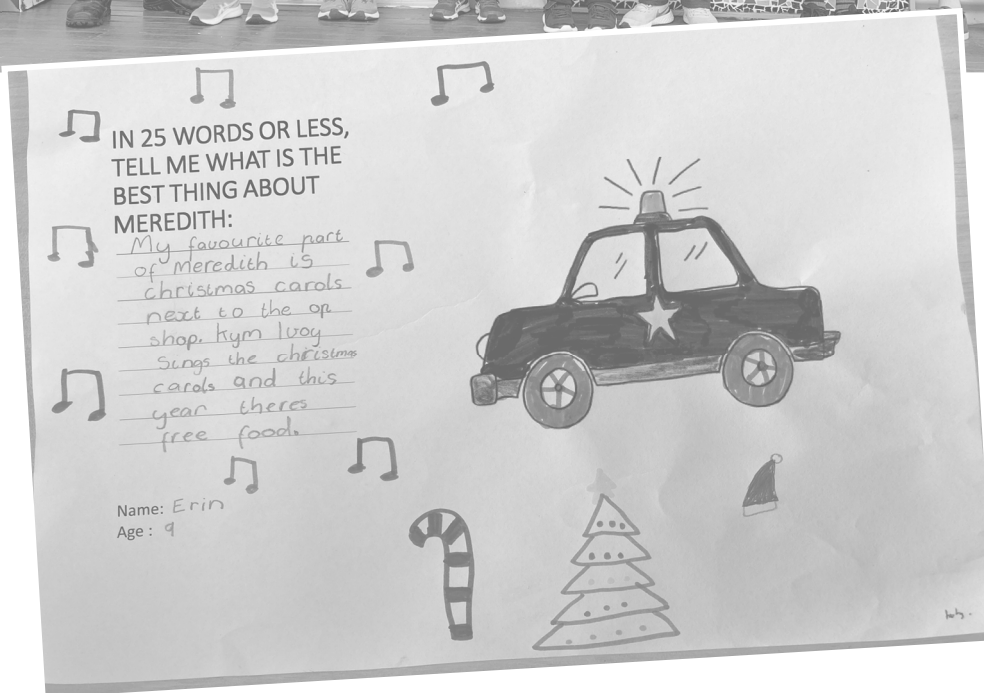 IN 25 WORDS OR LESS,
TELL ME WHAT IS THE
BEST THING ABOUT
MEREDITH:
My favourite part
of Meredith is
christmas carols
next to the op
shop. Kym Ivoy
Sings the christmas
carols and this
year theres
free food.
Name: Erin
Age : 9